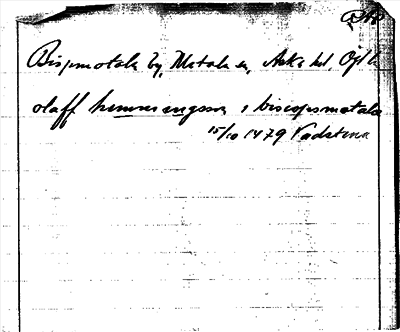 Bispmotala by, Motala sn, Aska hd, Ögtl
olaff hemmingsson i biscopsmotala
15/10 1479 Vadstena